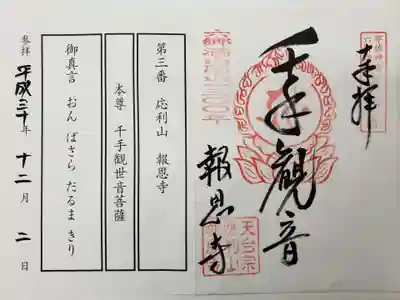 奉拝
千手観音
報恩寺
天台宗
第三番 応利山 報恩寺
本尊 千手観世音菩薩
御真言 おん ばさら だるま きり
参拝 平成三十年 十二月 二日